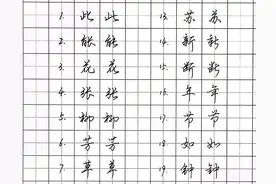 1. 此 此
2. 能 能
3. 花 花
4. 张 张
5. 柳 柳
6. 芳 芳
7. 草 草
13. 苏 苏
14. 新 新
15. 断 断
16. 年 年
17. 节 节
18. 如 如
19. 钟 钟